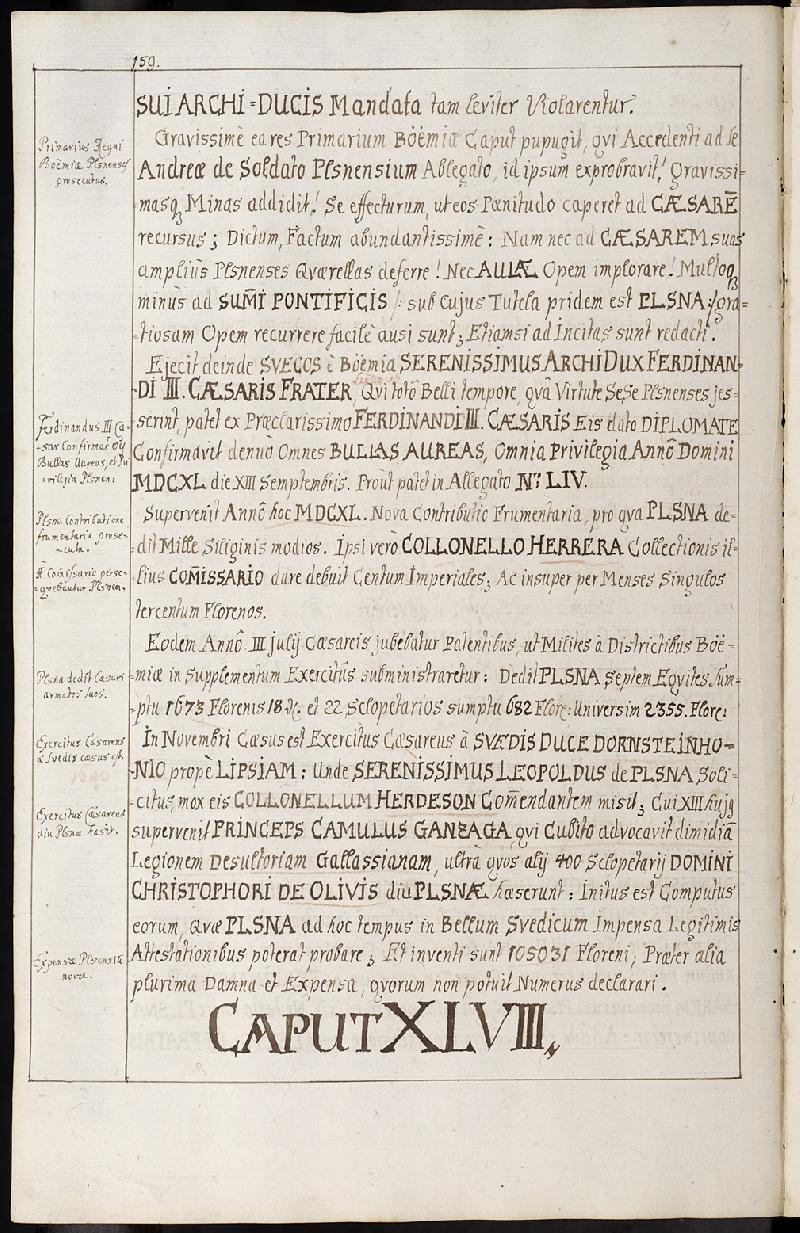 159.
SUI ARCHI=DUCIS Mandata tam leviter Violarentur.
Gravissimè ea res Primarium Böëmiæ Caput pupugit, qvi Accedenti ad se
Andreæ de Soldato Plsnensium Ablegato, id ipsum exprobravit! Gravissi=
masq₃ Minas addidit! Se effecturum, ut eos Pœnitudo caperet ad CÆSARĒ
recursus; Dictum, Factum abundantissimè: Nam nec ad CÆSAREM suas
ampliùs Plsnenses Qværellas deferre! Nec AULÆ Opem implorare! Multoq₃
minùs ad SUM̄I PONTIFICIS /: sub Cujus Tutela pridem est PLSNA :/ gra=
=tiosam Opem recurrere facilè ausi sunt; Etiamsi ad Incitas sunt redacti.
Ejecit deinde SVECOS è Böëmia SERENISSIMUS ARCHIDUX FERDINAN=
DI III. CÆSARIS FRATER, Qui totô Belli tempore, qvâ Virtute SeSe Plsnenses jes=
serint, patet ex Præclarissimo FERDINANDI III. CÆSARIS Eis dato DIPLOMATE
Confirmavit denuò Omnes BULLAS AUREAS, Omnia Privilegia Annô Domini
MDCXL die XIII Semptembris. Prout patet in Allegato Nr̂ LIV.
Supervenit Annô hoc MDCXL. Nova Contributio Frumentaria, pro qva PLSNA de=
dit Mille Siliginis modios. Ipsi verò COLLONELLO HERRERA Collectionis il=
lius COM̄ISSARIO dare debuit Centum Imperiales; Ac insuper per Menses Singulos
tercentum Florenos.
Eodem Annô III julij Cæsareis jubebatur Patentibus, ut Milites à Districtibus Böë=
miæ in Supplementum Exercitûs subministraretur: Dedit PLSNA Septem Eqvites Sum=
ptu 1673 Florenis 18 et 22 Sclopetarios sumptu 682 Flore: Universim 2355. Flore:
In Novembri Cæsus est Exercitus Cæsareus à SVÆDIS DUCE DORNSTEINHO=
NIO propè LIPSIAM: Unde SERENISSIMUS LEOPOLDUS de PLSNA Soli=
citus mox eis COLLONELLUM HERDESON Com̄endantem misit; Cui XIII hujg
supervenit PRINCEPS CAMULUS GANZAGA, qvi Cubito advocavit dimidiā
Legionem Desultoriam Gallassianam, ultrà qvos alij 400 Sclopetarij DOMINI
CHRISTOPHORI DE OLIVIS diu PLSNÆ hæserunt: Initus est Computus
eorum, Qvæ PLSNA ad hoc tempus in Bellum Svedicum Impensa Legitimis
Attestationibus poterat probare; Et inventi sunt 105031 Floreni, Præter alia
plurima Damna et Expensa, qvorum non potuit Numerus declarari.
CAPUT XLVIII.
Primarius Regni
Böëmiæ Plsnenses
prosecutus.
Ferdinandus III Cæ=
=sar Confirmat
Bullas Aureas, et Pri
=vilegia Plsnen:
Plsna Contributione
frumentaria prose=
=cuta.
A Com̄issario perse=
=qvebantur Plsnen:
Plsna dedit Cæsari
armatos suos.
Exercitus Cæsareus
à Svedis cæsus est.
Exercitus Cæsareus
diu Plsnæ hæsit.
Expensæ Plsnensiū
novæ.